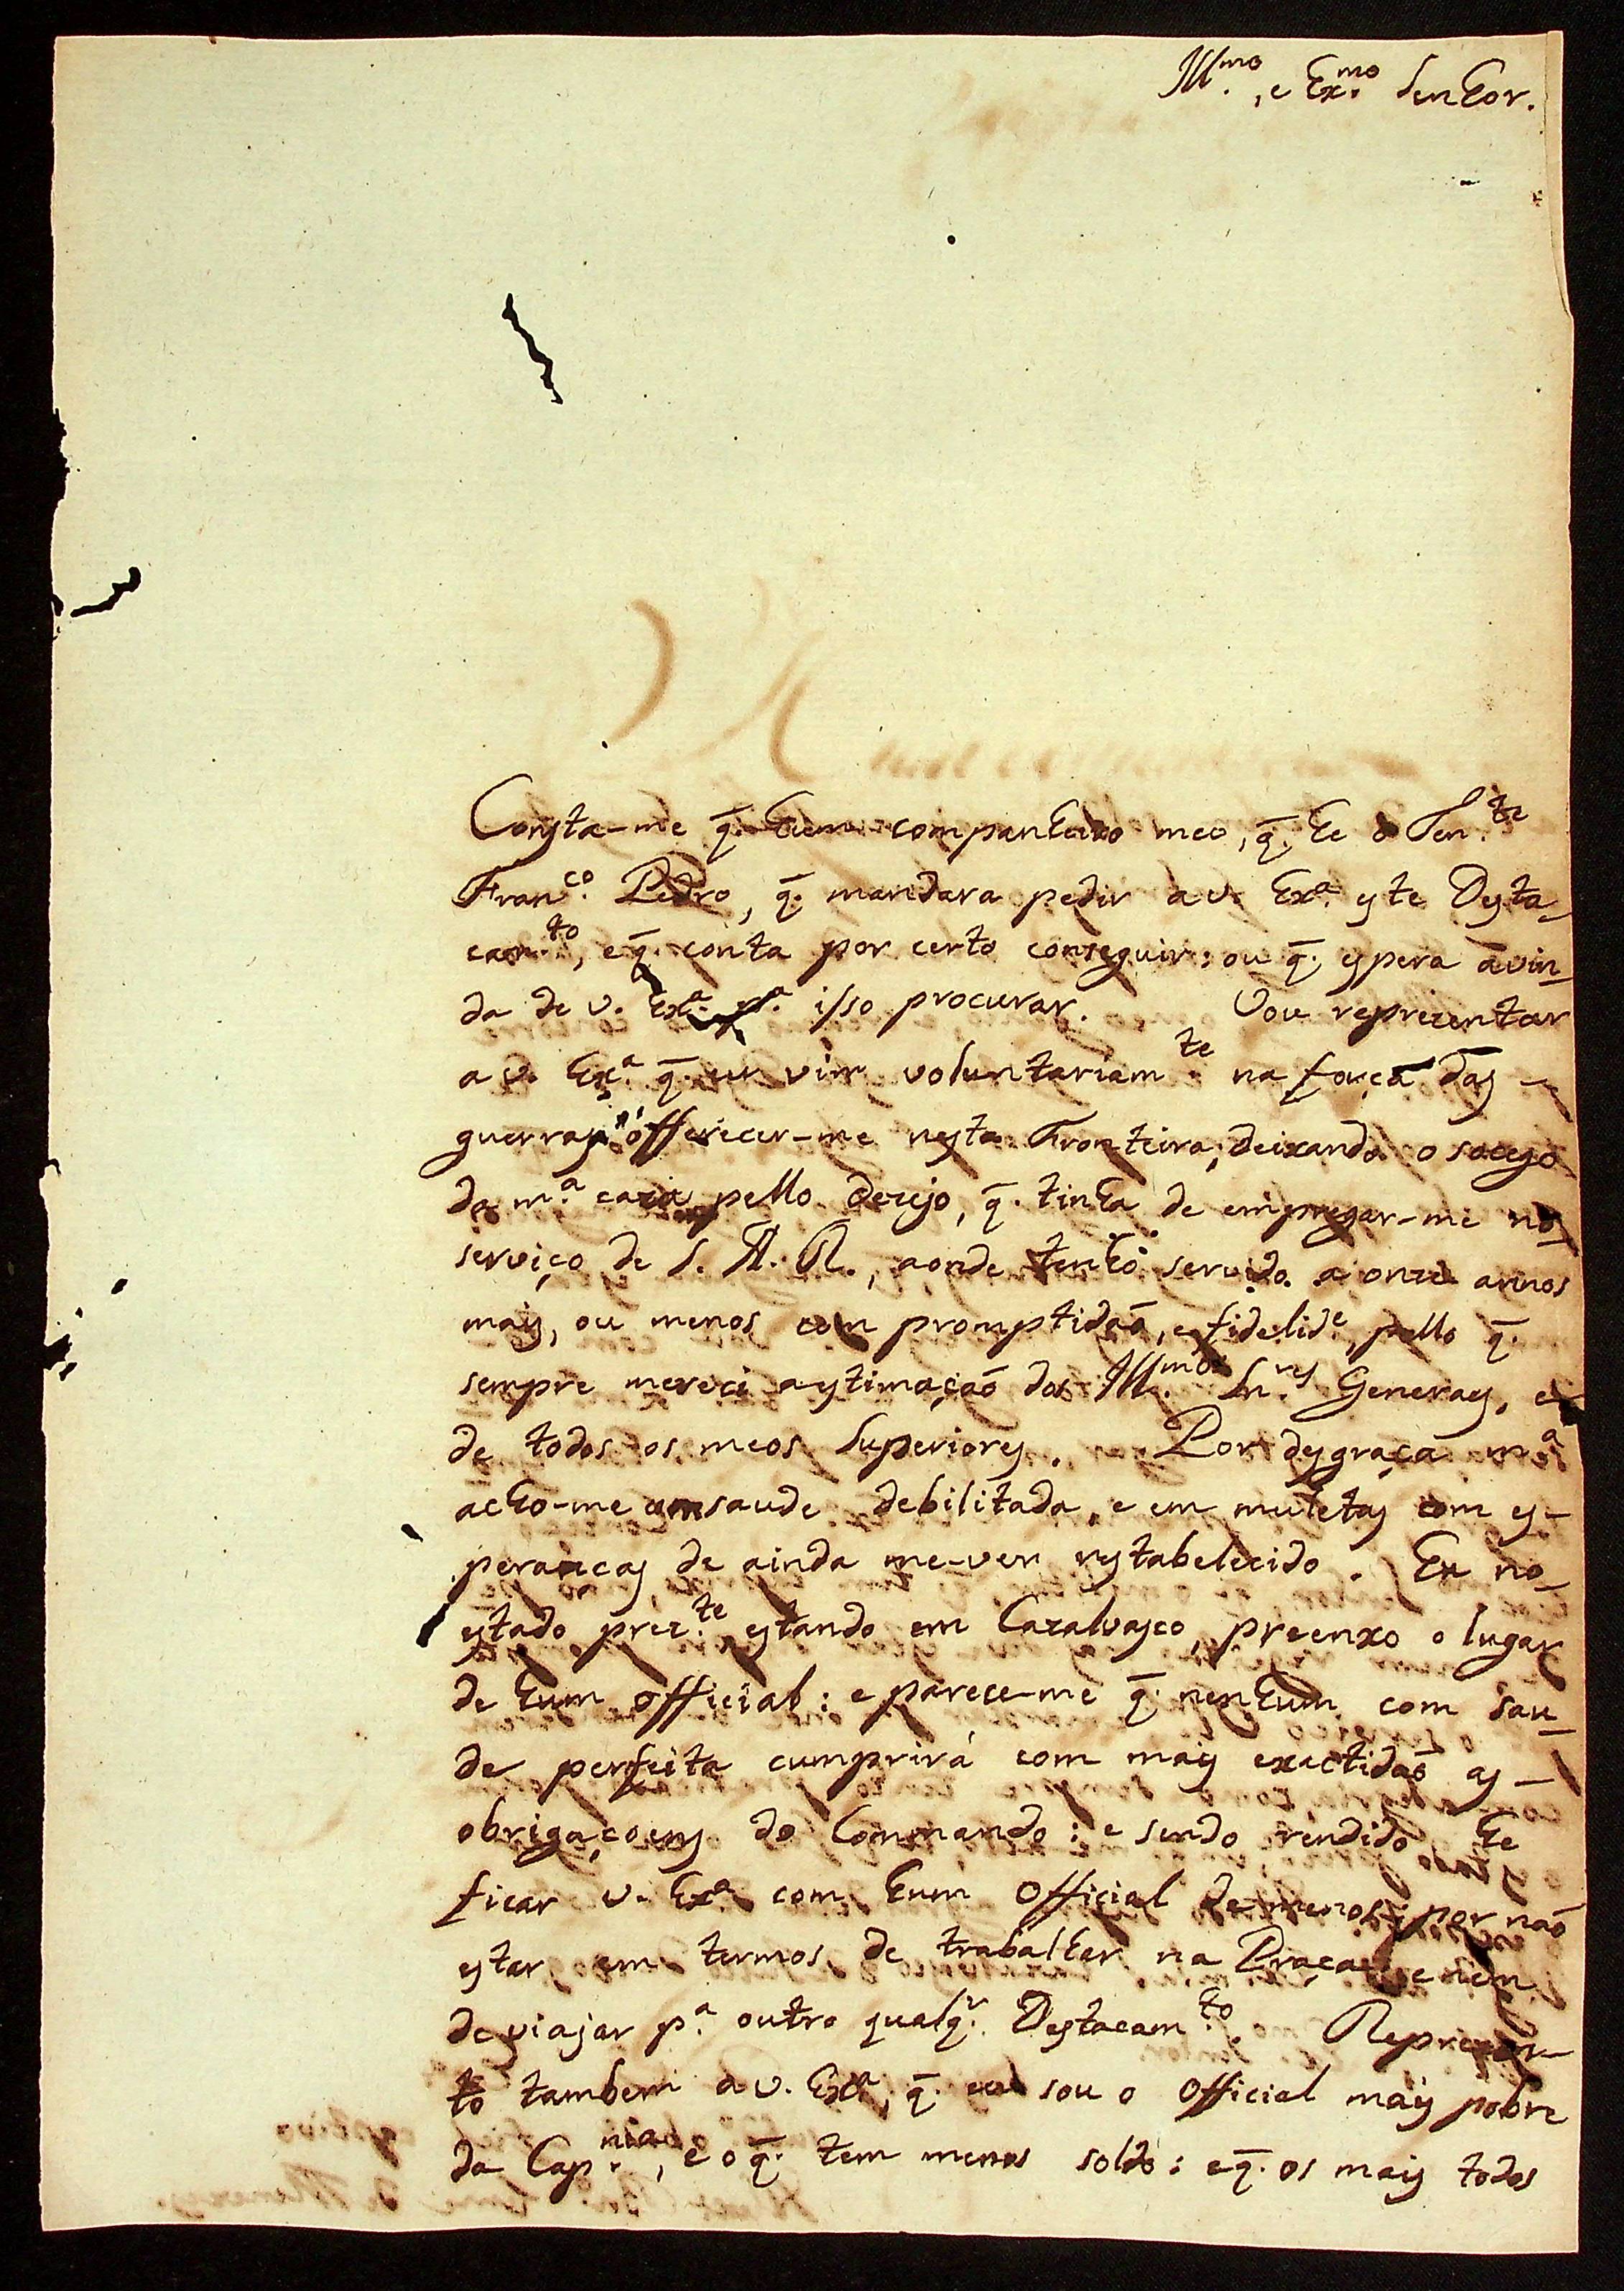 Ill.mo, e Ex.mo Senhor.
Consta-me q̃. hum companheiro meo, q̃. he o Ten.te
Fran.co Pedro, q̃. mandara pedir a v. Ex.a este Desta-
cam.to, e q̃. conta por certo conseguir: ou q̃. espera a vin-
da de v. Ex.a p.a isso procurar. Vou reprezentar
a v. Ex.a q̃. eu vim voluntariam.te na força das
guerras offerecer-me nesta Fronteira, deixando o socego
de m.a caza pello dezejo, q̃. tinha de empregar-me no
serviço de S. A. R., aonde tenho servido a onze annos
mais, ou menos com promptidaõ, e fidelid.e, pello q̃.
sempre mereci a estimaçaõ dos Ill.mos Sn.res Generaes, e
de todos os meos Superiores. Por desgraça m.a
acho-me com saude debilitada, e em muletas com es-
peranças de ainda me-ver restabelecido. Eu no
estado prez.te estando em Cazalvasco, preenxo o lugar
de hum official: e parece-me q̃. nenhum com sau-
de perfeita cumprirá com mais exactidaõ as
obrigaçoens do Commando: e sendo rendido he
ficar v. Ex.a com hum Official de menos, por naõ
estar em termos de trabalhar na Praça, e nem
de viajar p.a outro qualq.r Destacam.to. Reprezen-
to tambem a v. Ex.a, q̃. eu sou o Official mais pobre
da Cap.nia, e o q̃. tem menos soldo: e q̃. os mais todos